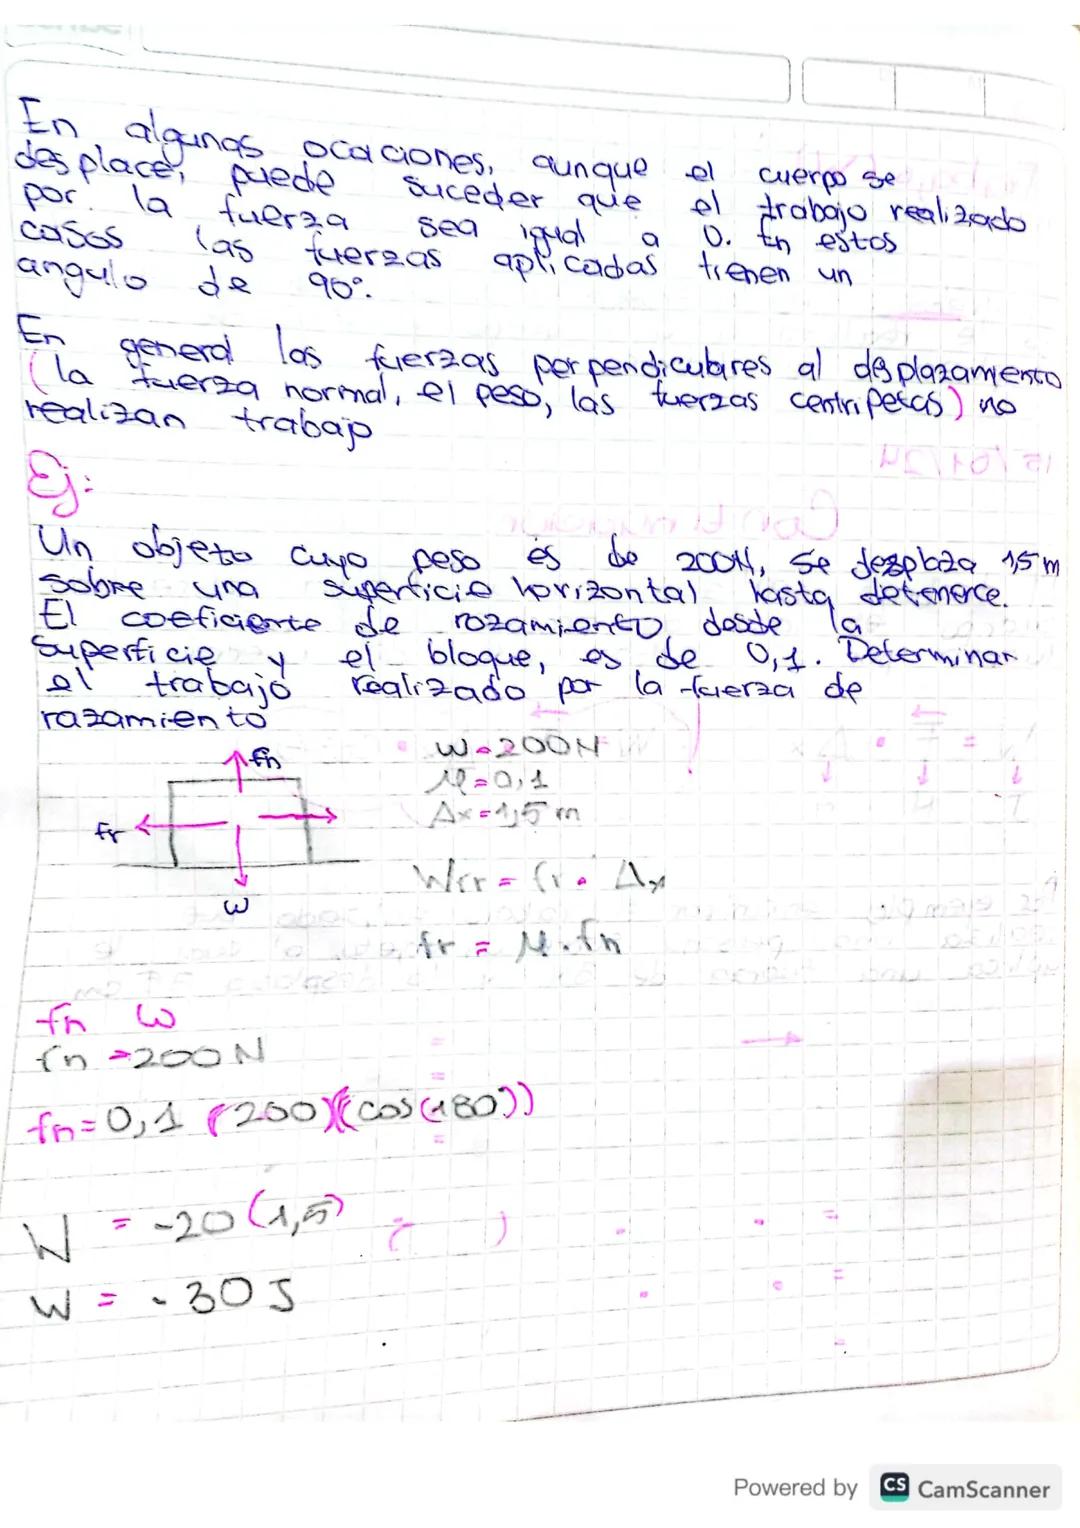 En algunas ocaciones, aunque el cuerpo se
desplace, puede suceder que el trabajo realizado
por la fuerza sea igual a 0. En estos
casos las fuerzas aplicadas tienen un
angulo de 90°.
En general las fuerzas perpendiculares al desplazamiento
(la fuerza normal, el peso, las fuerzas centripetas) no
realizan trabajo
Ej:
Un objeto cuyo peso es de 200N, se desplaza 1,5 m
sobre una superficie horizontal hasta detenerce.
El coeficiente de rozamiento desde la
superficie y el bloque, es de 0,1. Determinar
el trabajo realizado por la fuerza de
razamiento
fn
fr
w
W=200N
M=0,1
Δx=1,5 m
Wfr = fr . Δx
fr = M.fn
fn w
fn =200N
fn=0,1 (200)(cos(180))
W = -20(1,5)
W = -30J
Powered by CS CamScanner